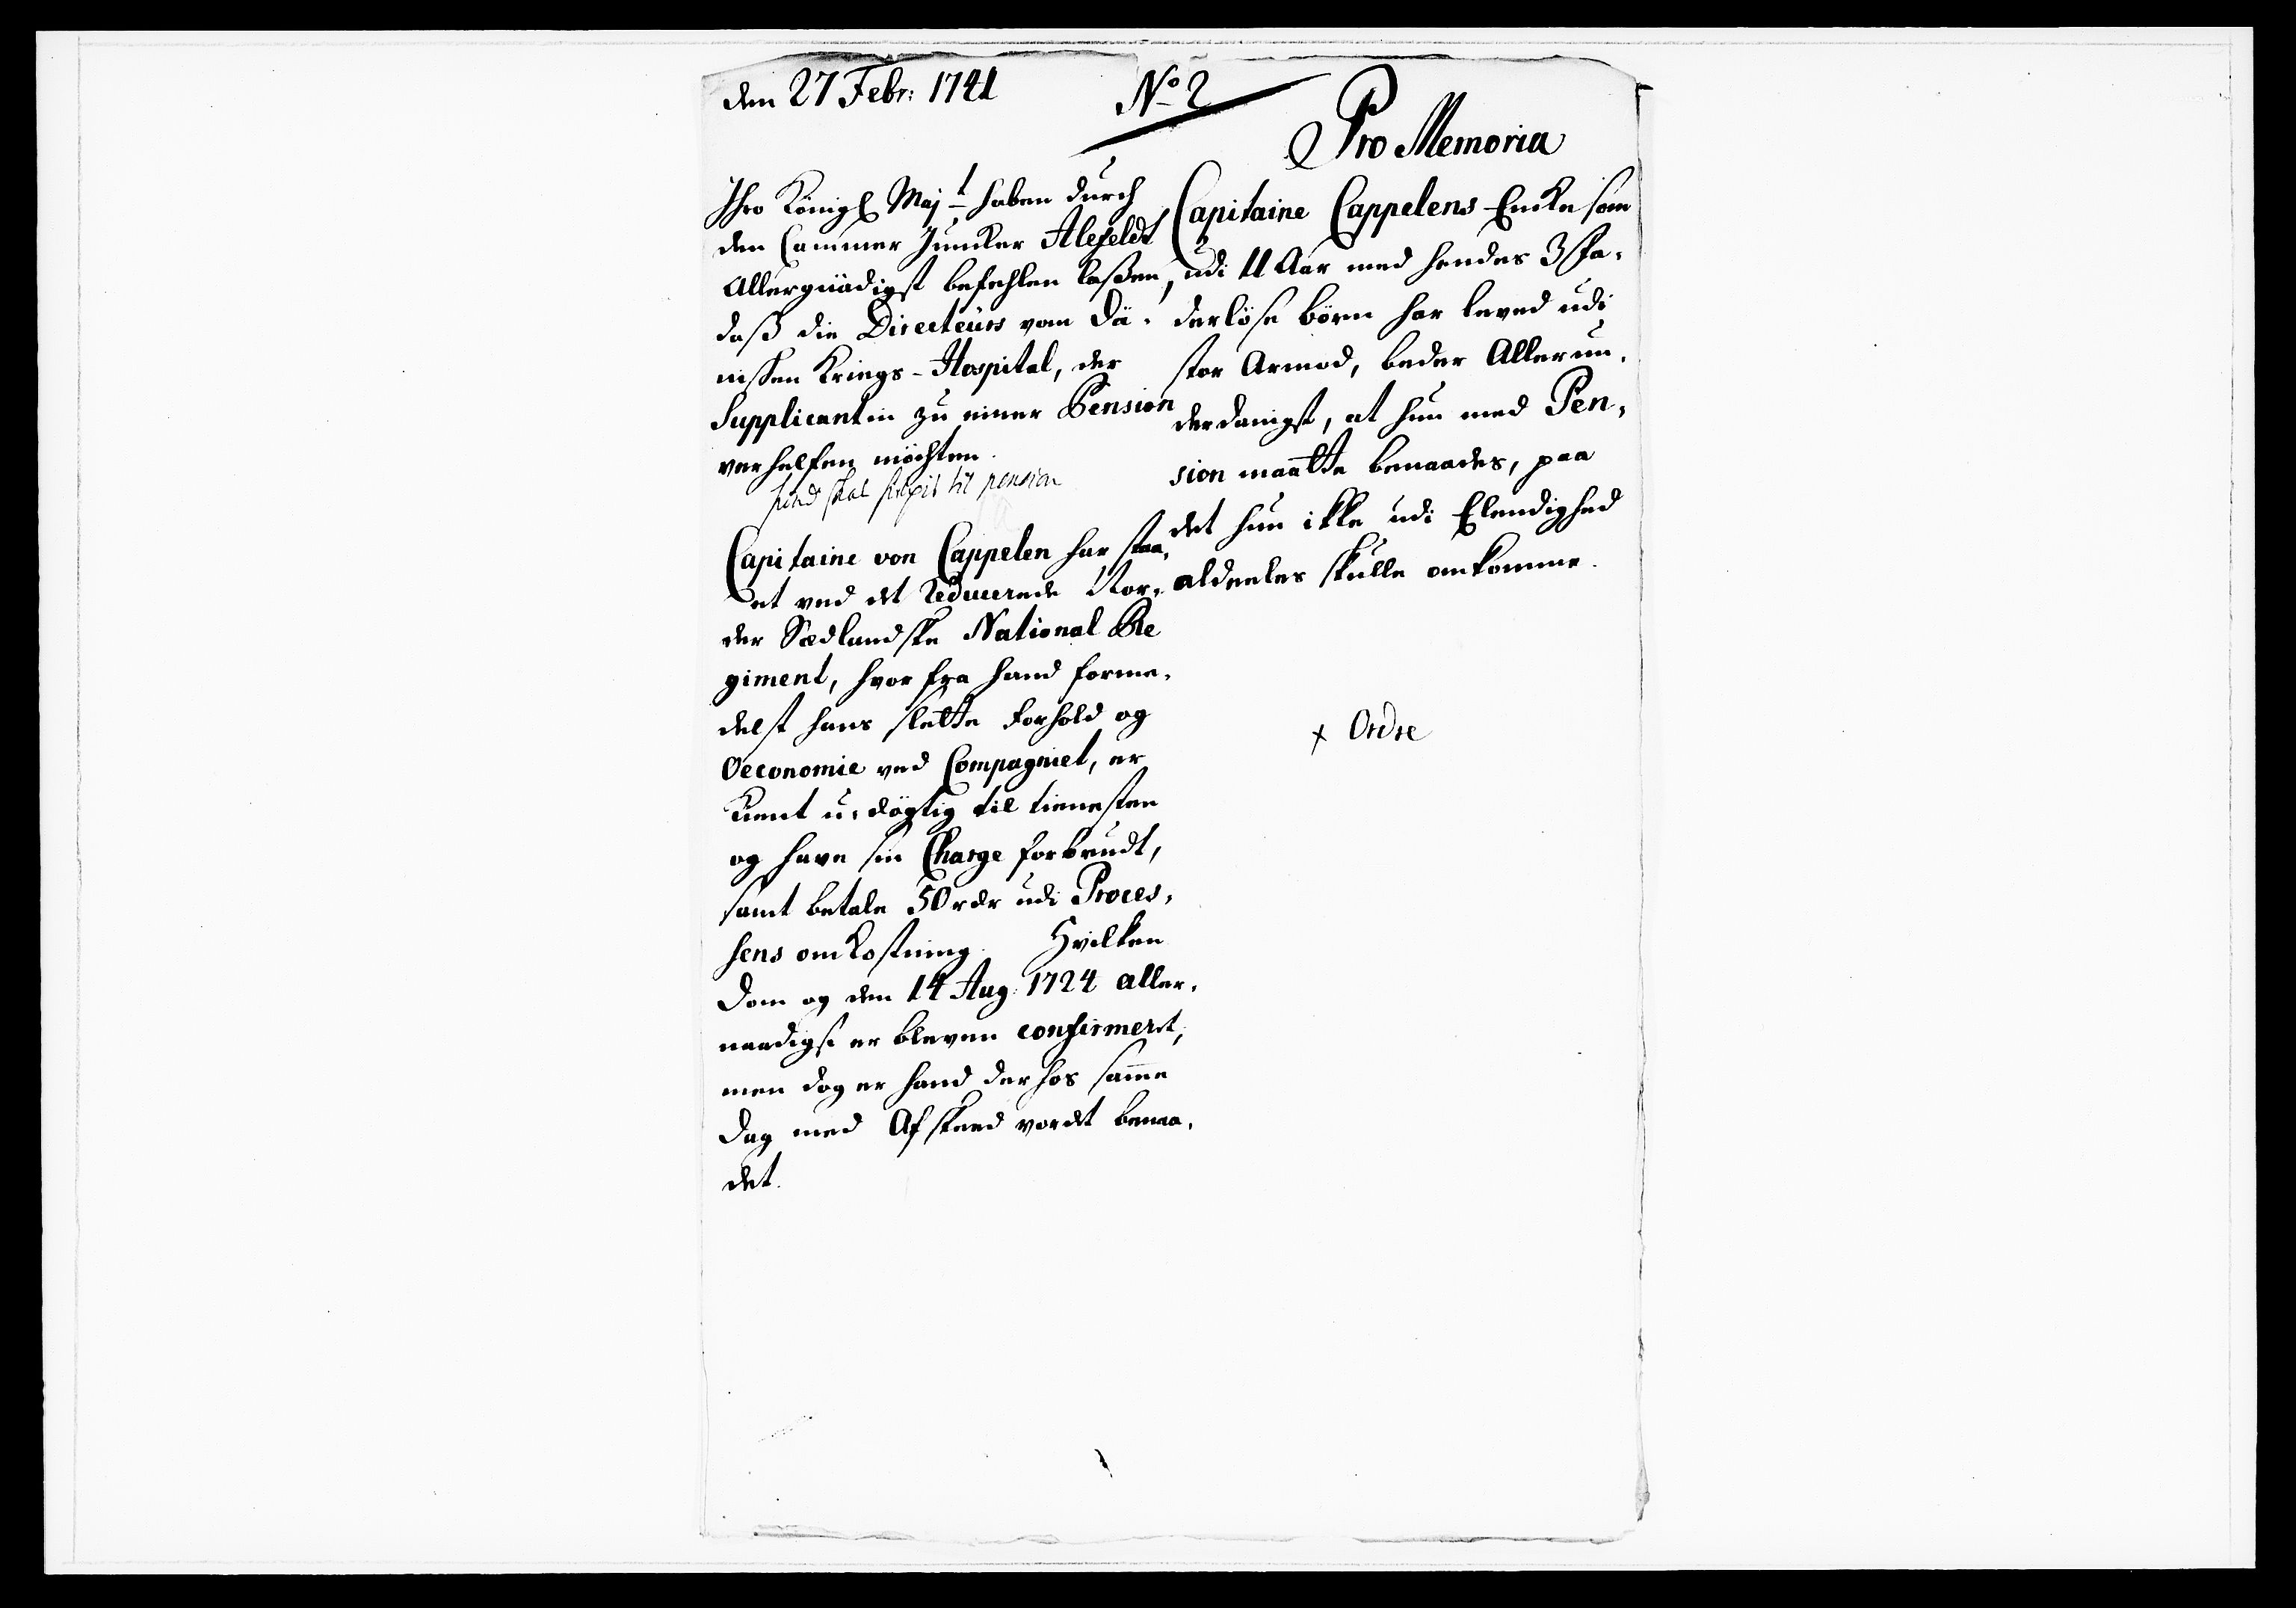 den 27 Febr: 1741
No 2
Pro Memoria
Ihro Königl Majt haben durch
den Cammer Juncker Alefeldt
Allergnädigst befehlen laßen,
daß die Directeurs vom Dä-
nischen Kriegs-Hospital, der
Supplicantin zu einer Pension
verhelfen möchten.
hind skal til pension
Capitaine von Cappelen har staa-
et ved det reducerede Nor-
der Siædlandske National Re
giment, hvor fra hand forme-
delst hans slette Forhold og
Oeconomie ved Compagniet, er
kient u-dögtig til tienesten
og have sin Charge forbrudt,
samt betale 50 rdr udi Proces-
sens omkostning. Hvilken
Dom og den 14 Aug: 1724 aller-
naadigst er bleven confirmeret,
men dog er hand der hos samme
Dag med Afskeed vordet benaa-
det.
Capitaine Cappelens Encke som
udi 11 Aar med hendes 3 Fa-
derlöse börn har leved udi
stor Armod, beder Allerun-
derdanigst, at hun med Pen-
sion maatte benaades, paa
det hun ikke udi Elendighed
aldeeles skulle omkomme.
x Ordre